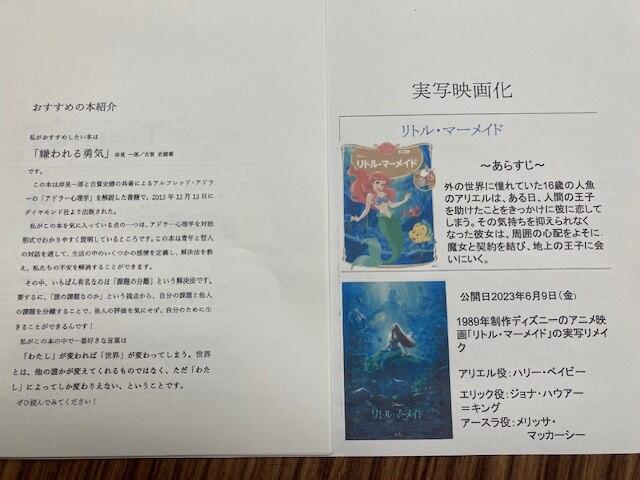 おすすめの本紹介
私がおすすめしたい本は
「嫌われる勇気」 岸見 一郎／古賀 史健著
です。
この本は岸見一郎と古賀史健の共著によるアルフレッド・アドラ
ーの「アドラー心理学」を解説した書籍で、2013年12月13日に
ダイヤモンド社より出版された。
私がこの本を気に入っている点の一つは、アドラー心理学を対話
形式でわかりやすく説明しているところです。この本は青年と哲人
の対話を通して、生活の中のいくつかの感情を定義し、解決法を教
え、私たちの不安を解消することができます。
その中、いちばん有名なのは「課題の分離」という解決法です。
要するに、「誰の課題なのか」という視点から、自分の課題と他人
の課題を分離することで、他人の評価を気にせず、自分のために生
きることができるんです！
私がこの本の中で一番好きな言葉は
「わたし」が変われば「世界」が変わってしまう。世界
とは、他の誰かが変えてくれるものではなく、ただ「わた
し」によってしか変わりえない、ということです。
ぜひ読んでみてください！
実写映画化
リトル・マーメイド
リトル・マーメイド
～あらすじ～
外の世界に憧れていた16歳の人魚
のアリエルは、ある日、人間の王子
を助けたことをきっかけに彼に恋して
しまう。その気持ちを抑えられなく
なった彼女は、周囲の心配をよそに
魔女と契約を結び、地上の王子に会
いにいく。
リトル・マーメイド
公開日2023年6月9日（金）
1989年制作ディズニーのアニメ映
画「リトル・マーメイド」の実写リメイ
ク
アリエル役：ハリー・ベイビー
エリック役：ジョナ・ハウアー
＝キング
アースラ役：メリッサ・
マッカーシー